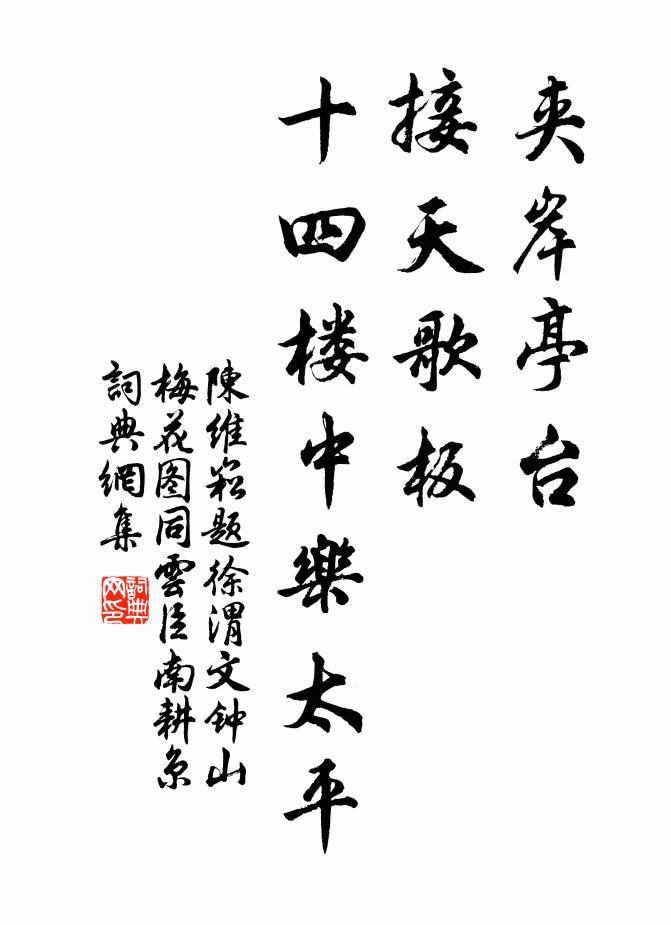 夹岸亭台
接天歌板
十四楼中樂太平
陳维崧题徐渭文钟山
梅花图同雲臣南耕京
詞典網集
詞典網印